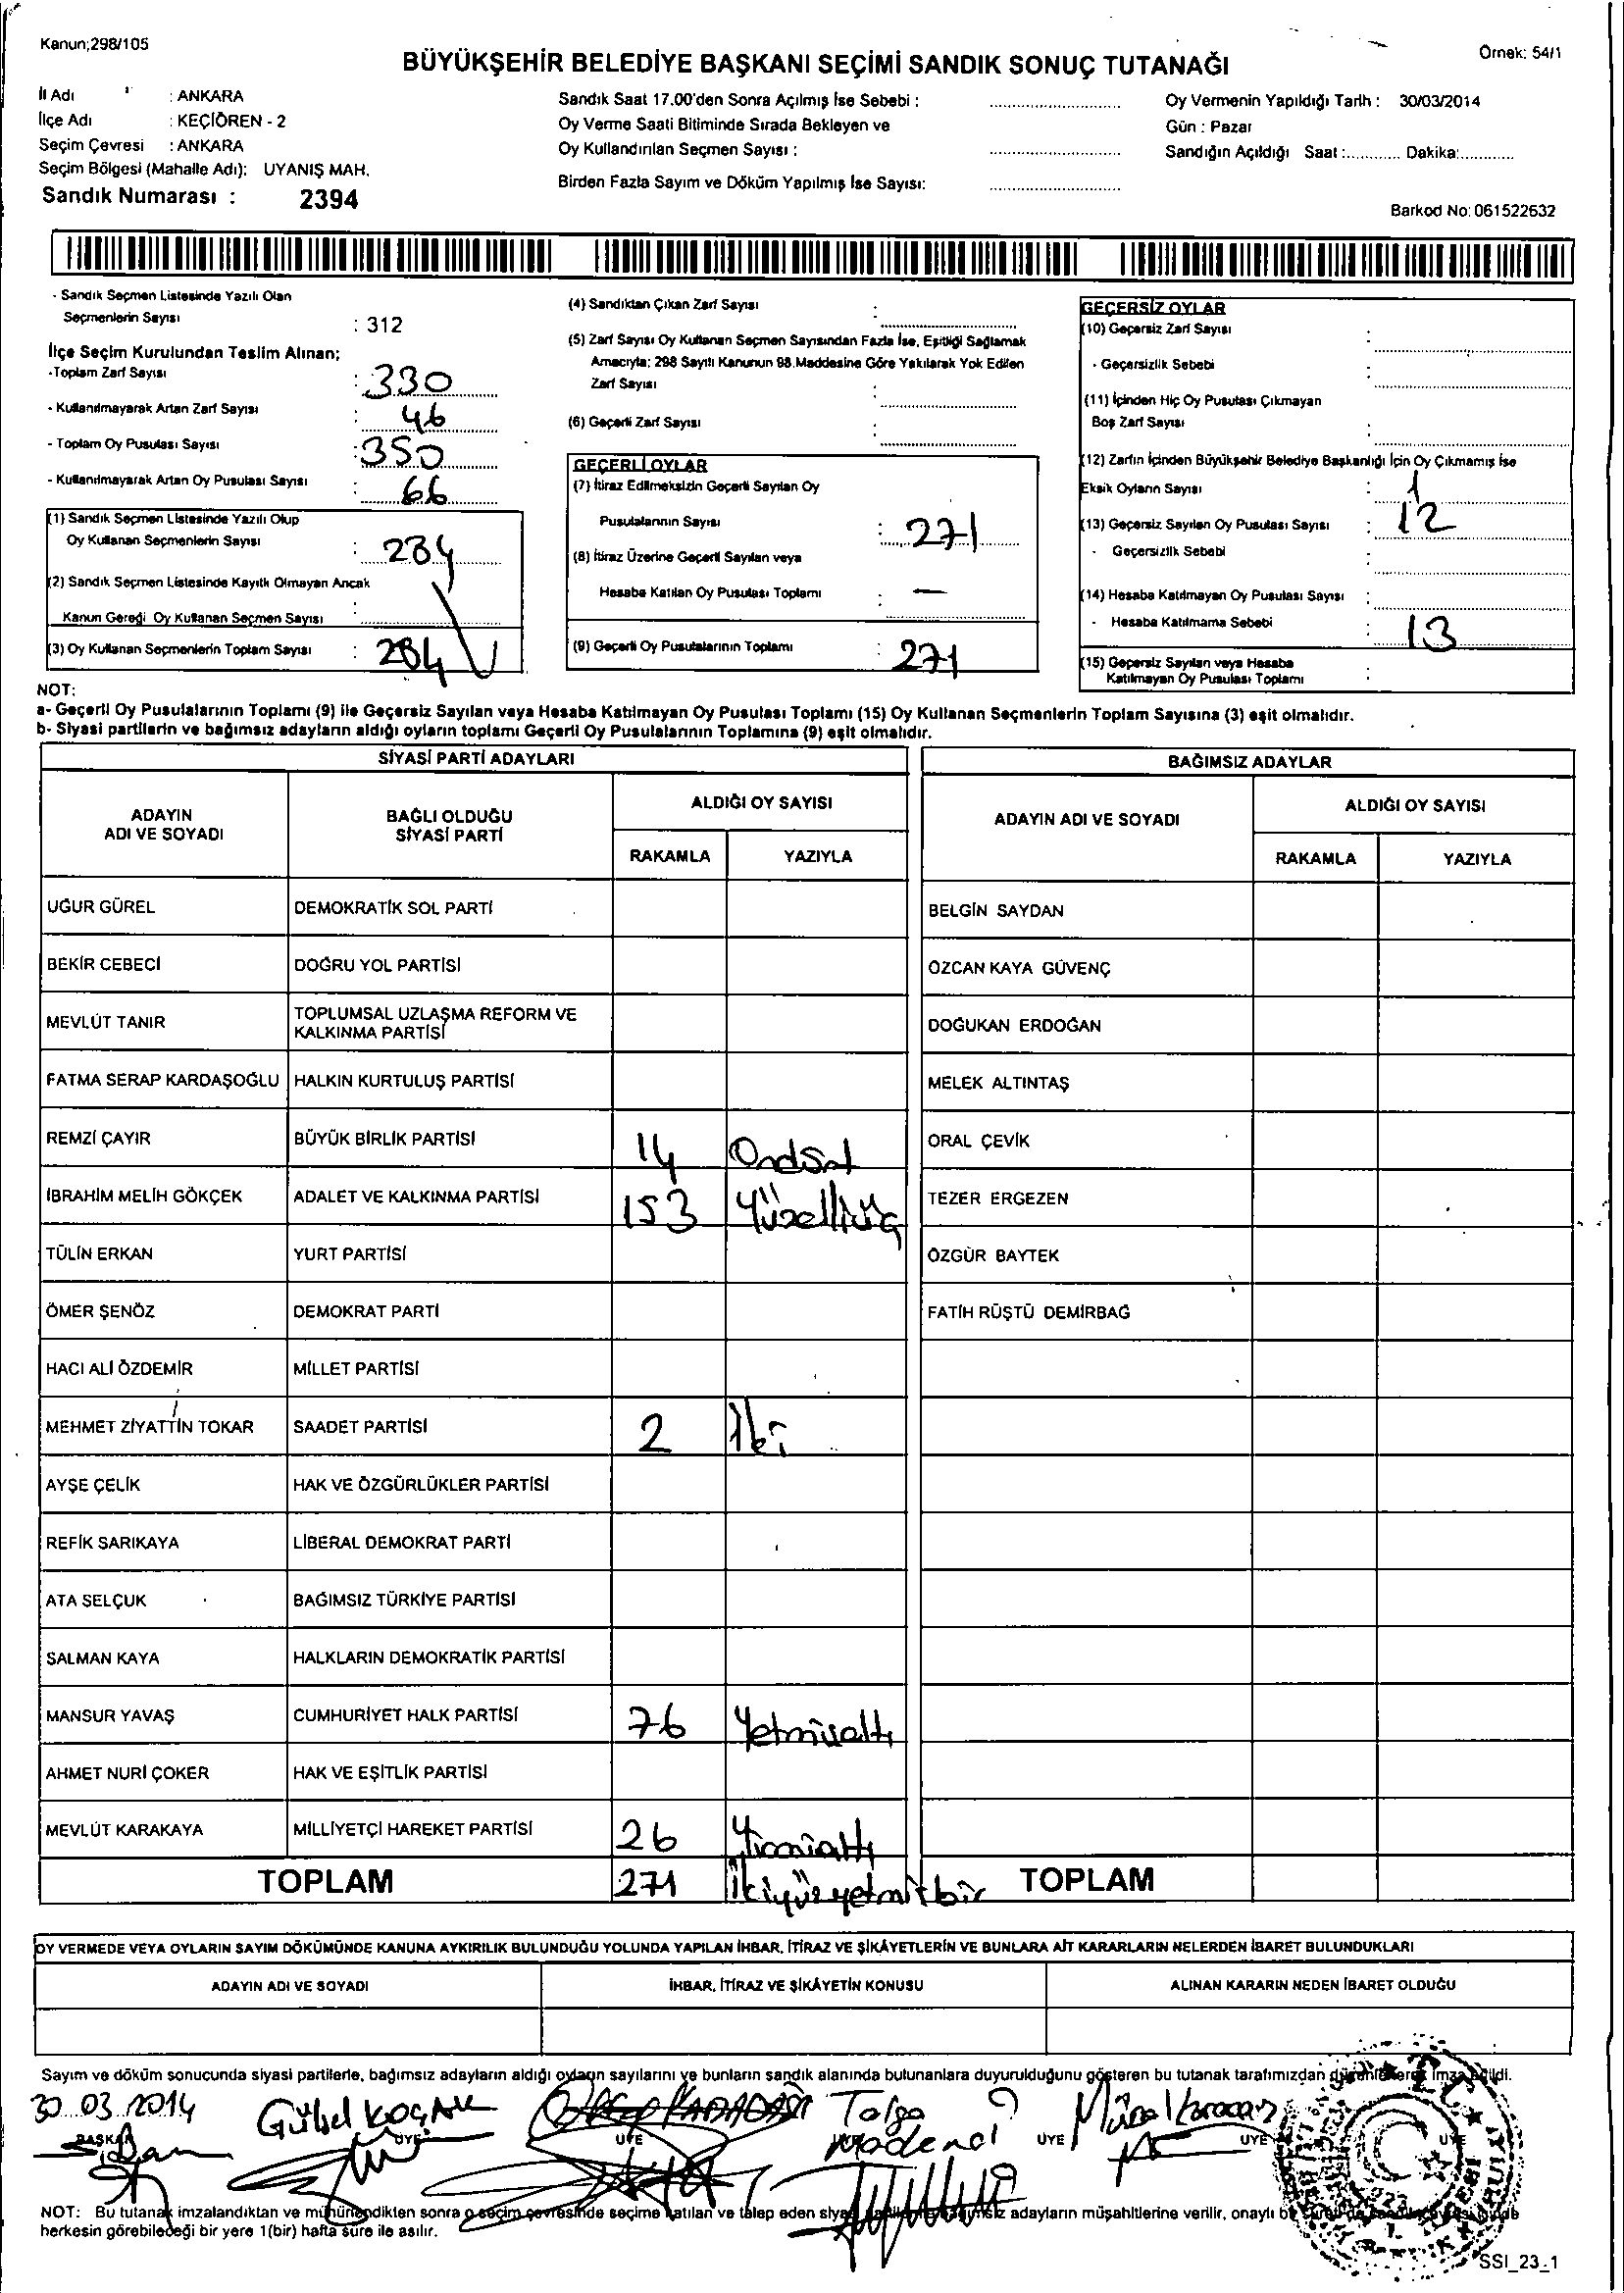 Kanun;298/105
Örnek: 54/1
BÜYÜKŞEHİR BELEDİYE BAŞKANI SEÇİMİ SANDIK SONUÇ TUTANAĞI
İl Adı : ANKARA
İlçe Adı : KEÇİÖREN - 2
Seçim Çevresi : ANKARA
Seçim Bölgesi (Mahalle Adı): UYANIŞ MAH.
Sandık Numarası : 2394
Sandık Saat 17.00'den Sonra Açılmış İse Sebebi :
Oy Verme Saati Bitiminde Sırada Bekleyen ve
Oy Kullandırılan Seçmen Sayısı :
Birden Fazla Sayım ve Döküm Yapılmış İse Sayısı:
Oy Vermenin Yapıldığı Tarih : 30/03/2014
Gün : Pazar
Sandığın Açıldığı Saat :............ Dakika:............
Barkod No: 061522632
- Sandık Seçmen Listesinde Yazılı Olan
Seçmenlerin Sayısı : 312
İlçe Seçim Kurulundan Teslim Alınan;
-Toplam Zarf Sayısı : 330
- Kullanılmayarak Artan Zarf Sayısı : 46
- Toplam Oy Pusulası Sayısı : 350
- Kullanılmayarak Artan Oy Pusulası Sayısı : 66
(1) Sandık Seçmen Listesinde Yazılı Olup
Oy Kullanan Seçmenlerin Sayısı : 284
(2) Sandık Seçmen Listesinde Kayıtlı Olmayan Ancak
Kanun Gereği Oy Kullanan Seçmen Sayısı :
(3) Oy Kullanan Seçmenlerin Toplam Sayısı : 284
(4) Sandıktan Çıkan Zarf Sayısı :
(5) Zarf Sayısı Oy Kullanan Seçmen Sayısından Fazla İse, Eşitliği Sağlamak
Amacıyla; 298 Sayılı Kanunun 98.Maddesine Göre Yakılarak Yok Edilen
Zarf Sayısı :
(6) Geçerli Zarf Sayısı :
GEÇERLİ OYLAR
(7) İtiraz Edilmeksizin Geçerli Sayılan Oy
Pusulalarının Sayısı : 271
(8) İtiraz Üzerine Geçerli Sayılan veya
Hesaba Katılan Oy Pusulası Toplamı : —
(9) Geçerli Oy Pusulalarının Toplamı : 271
GEÇERSİZ OYLAR
(10) Geçersiz Zarf Sayısı :
- Geçersizlik Sebebi :
(11) İçinden Hiç Oy Pusulası Çıkmayan
Boş Zarf Sayısı :
(12) Zarfın İçinden Büyükşehir Belediye Başkanlığı İçin Oy Çıkmamış İse
Eksik Oyların Sayısı : 1
(13) Geçersiz Sayılan Oy Pusulası Sayısı : 12
- Geçersizlik Sebebi :
(14) Hesaba Katılmayan Oy Pusulası Sayısı :
- Hesaba Katılmama Sebebi : 13
(15) Geçersiz Sayılan veya Hesaba
Katılmayan Oy Pusulası Toplamı :
NOT:
a- Geçerli Oy Pusulalarının Toplamı (9) ile Geçersiz Sayılan veya Hesaba Katılmayan Oy Pusulası Toplamı (15) Oy Kullanan Seçmenlerin Toplam Sayısına (3) eşit olmalıdır.
b- Siyasi partilerin ve bağımsız adayların aldığı oyların toplamı Geçerli Oy Pusulalarının Toplamına (9) eşit olmalıdır.
SİYASİ PARTİ ADAYLARI
BAĞIMSIZ ADAYLAR
ADAYIN
ADI VE SOYADI
BAĞLI OLDUĞU
SİYASİ PARTİ
ALDIĞI OY SAYISI
RAKAMLA YAZIYLA
ADAYIN ADI VE SOYADI
ALDIĞI OY SAYISI
RAKAMLA YAZIYLA
UĞUR GÜREL DEMOKRATİK SOL PARTİ BELGİN SAYDAN
BEKİR CEBECİ DOĞRU YOL PARTİSİ ÖZCAN KAYA GÜVENÇ
MEVLÜT TANIR TOPLUMSAL UZLAŞMA REFORM VE
KALKINMA PARTİSİ DOĞUKAN ERDOĞAN
FATMA SERAP KARDAŞOĞLU HALKIN KURTULUŞ PARTİSİ MELEK ALTINTAŞ
REMZİ ÇAYIR BÜYÜK BİRLİK PARTİSİ 14 Ondört ORAL ÇEVİK
İBRAHİM MELİH GÖKÇEK ADALET VE KALKINMA PARTİSİ 153 Yüzelliüç TEZER ERGEZEN
TÜLİN ERKAN YURT PARTİSİ ÖZGÜR BAYTEK
ÖMER ŞENÖZ DEMOKRAT PARTİ FATİH RÜŞTÜ DEMİRBAĞ
HACI ALİ ÖZDEMİR MİLLET PARTİSİ
MEHMET ZİYATTİN TOKAR SAADET PARTİSİ 2 İki
AYŞE ÇELİK HAK VE ÖZGÜRLÜKLER PARTİSİ
REFİK SARIKAYA LİBERAL DEMOKRAT PARTİ
ATA SELÇUK BAĞIMSIZ TÜRKİYE PARTİSİ
SALMAN KAYA HALKLARIN DEMOKRATİK PARTİSİ
MANSUR YAVAŞ CUMHURİYET HALK PARTİSİ 76 Yetmişaltı
AHMET NURİ ÇOKER HAK VE EŞİTLİK PARTİSİ
MEVLÜT KARAKAYA MİLLİYETÇİ HAREKET PARTİSİ 26 Yirmialtı
TOPLAM 271 İkiyüzyetmişbir TOPLAM
OY VERMEDE VEYA OYLARIN SAYIM DÖKÜMÜNDE KANUNA AYKIRILIK BULUNDUĞU YOLUNDA YAPILAN İHBAR, İTİRAZ VE ŞİKÂYETLERİN VE BUNLARA AİT KARARLARIN NELERDEN İBARET BULUNDUKLARI
ADAYIN ADI VE SOYADI İHBAR, İTİRAZ VE ŞİKÂYETİN KONUSU ALINAN KARARIN NEDEN İBARET OLDUĞU
Sayım ve döküm sonucunda siyasi partilerle, bağımsız adayların aldığı oyların sayılarını ve bunların sandık alanında bulunanlara duyurulduğunu gösteren bu tutanak tarafımızdan düzenlenerek imza edildi.
30.03.2014 Gülşel KOÇAK Tolga
BAŞKAN ÜYE ÜYE ÜYE ÜYE ÜYE
NOT: Bu tutanak imzalandıktan ve mühürlendikten sonra o seçim çevresinde seçime katılan ve talep eden siyasi adayların müşahitlerine verilir, onaylı bir
herkesin görebileceği bir yere 1(bir) hafta süre ile asılır.
SSI_23_1